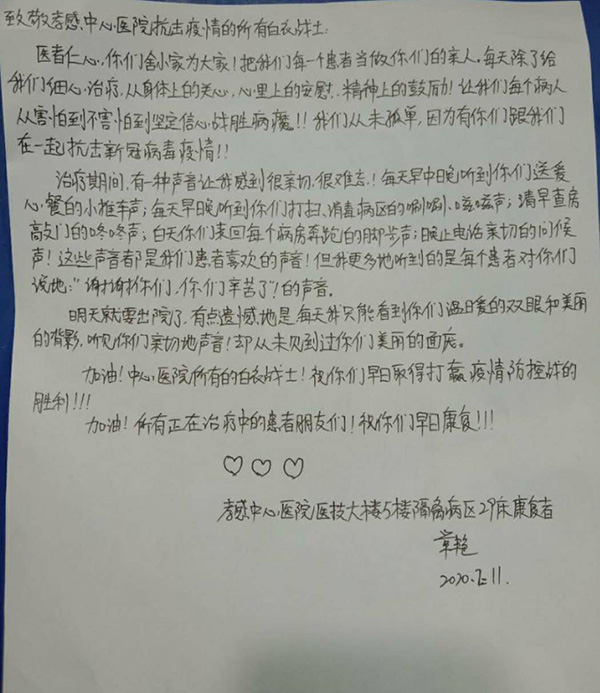 致敬孝感中心医院抗击疫情的所有白衣战士:
医者仁心,你们舍小家为大家!把我们每一个患者当做你们的亲人。每天除了给
我们细心治疗,从身体上的关心,心里上的安慰,精神上的鼓励!让我们每个病人
从害怕到不害怕到坚定信心战胜病魔!!我们从未孤单,因为有你们跟我们
在一起抗击新冠病毒疫情!!
治疗期间,有一种声音让我感到很亲切,很难忘!每天早中晚听到你们送爱
心餐的小推车声;每天早晚听到你们打扫、消毒病区的唰唰、嗞嗞声;清早查房
敲门的咚咚声;白天你们来回每个病房奔跑的脚步声;晚上电话亲切的问候
声!这些声音都是我们患者喜欢的声音!但我更多地听到的是每个患者对你们
说地:"谢谢你们,你们辛苦了"!的声音。
明天就要出院了,有点遗憾地是每天我只能看到你们温暖的双眼和美丽
的背影,听见你们亲切地声音!却从未见到过你们美丽的面庞。
加油!中心医院所有的白衣战士!祝你们早日取得打赢疫情防控战的
胜利!!!
加油!所有正在治疗中的患者朋友们!祝你们早日康复!!!
♡ ♡ ♡
孝感中心医院医技大楼5楼隔离病区29床康复者
艳
2020.2.11.